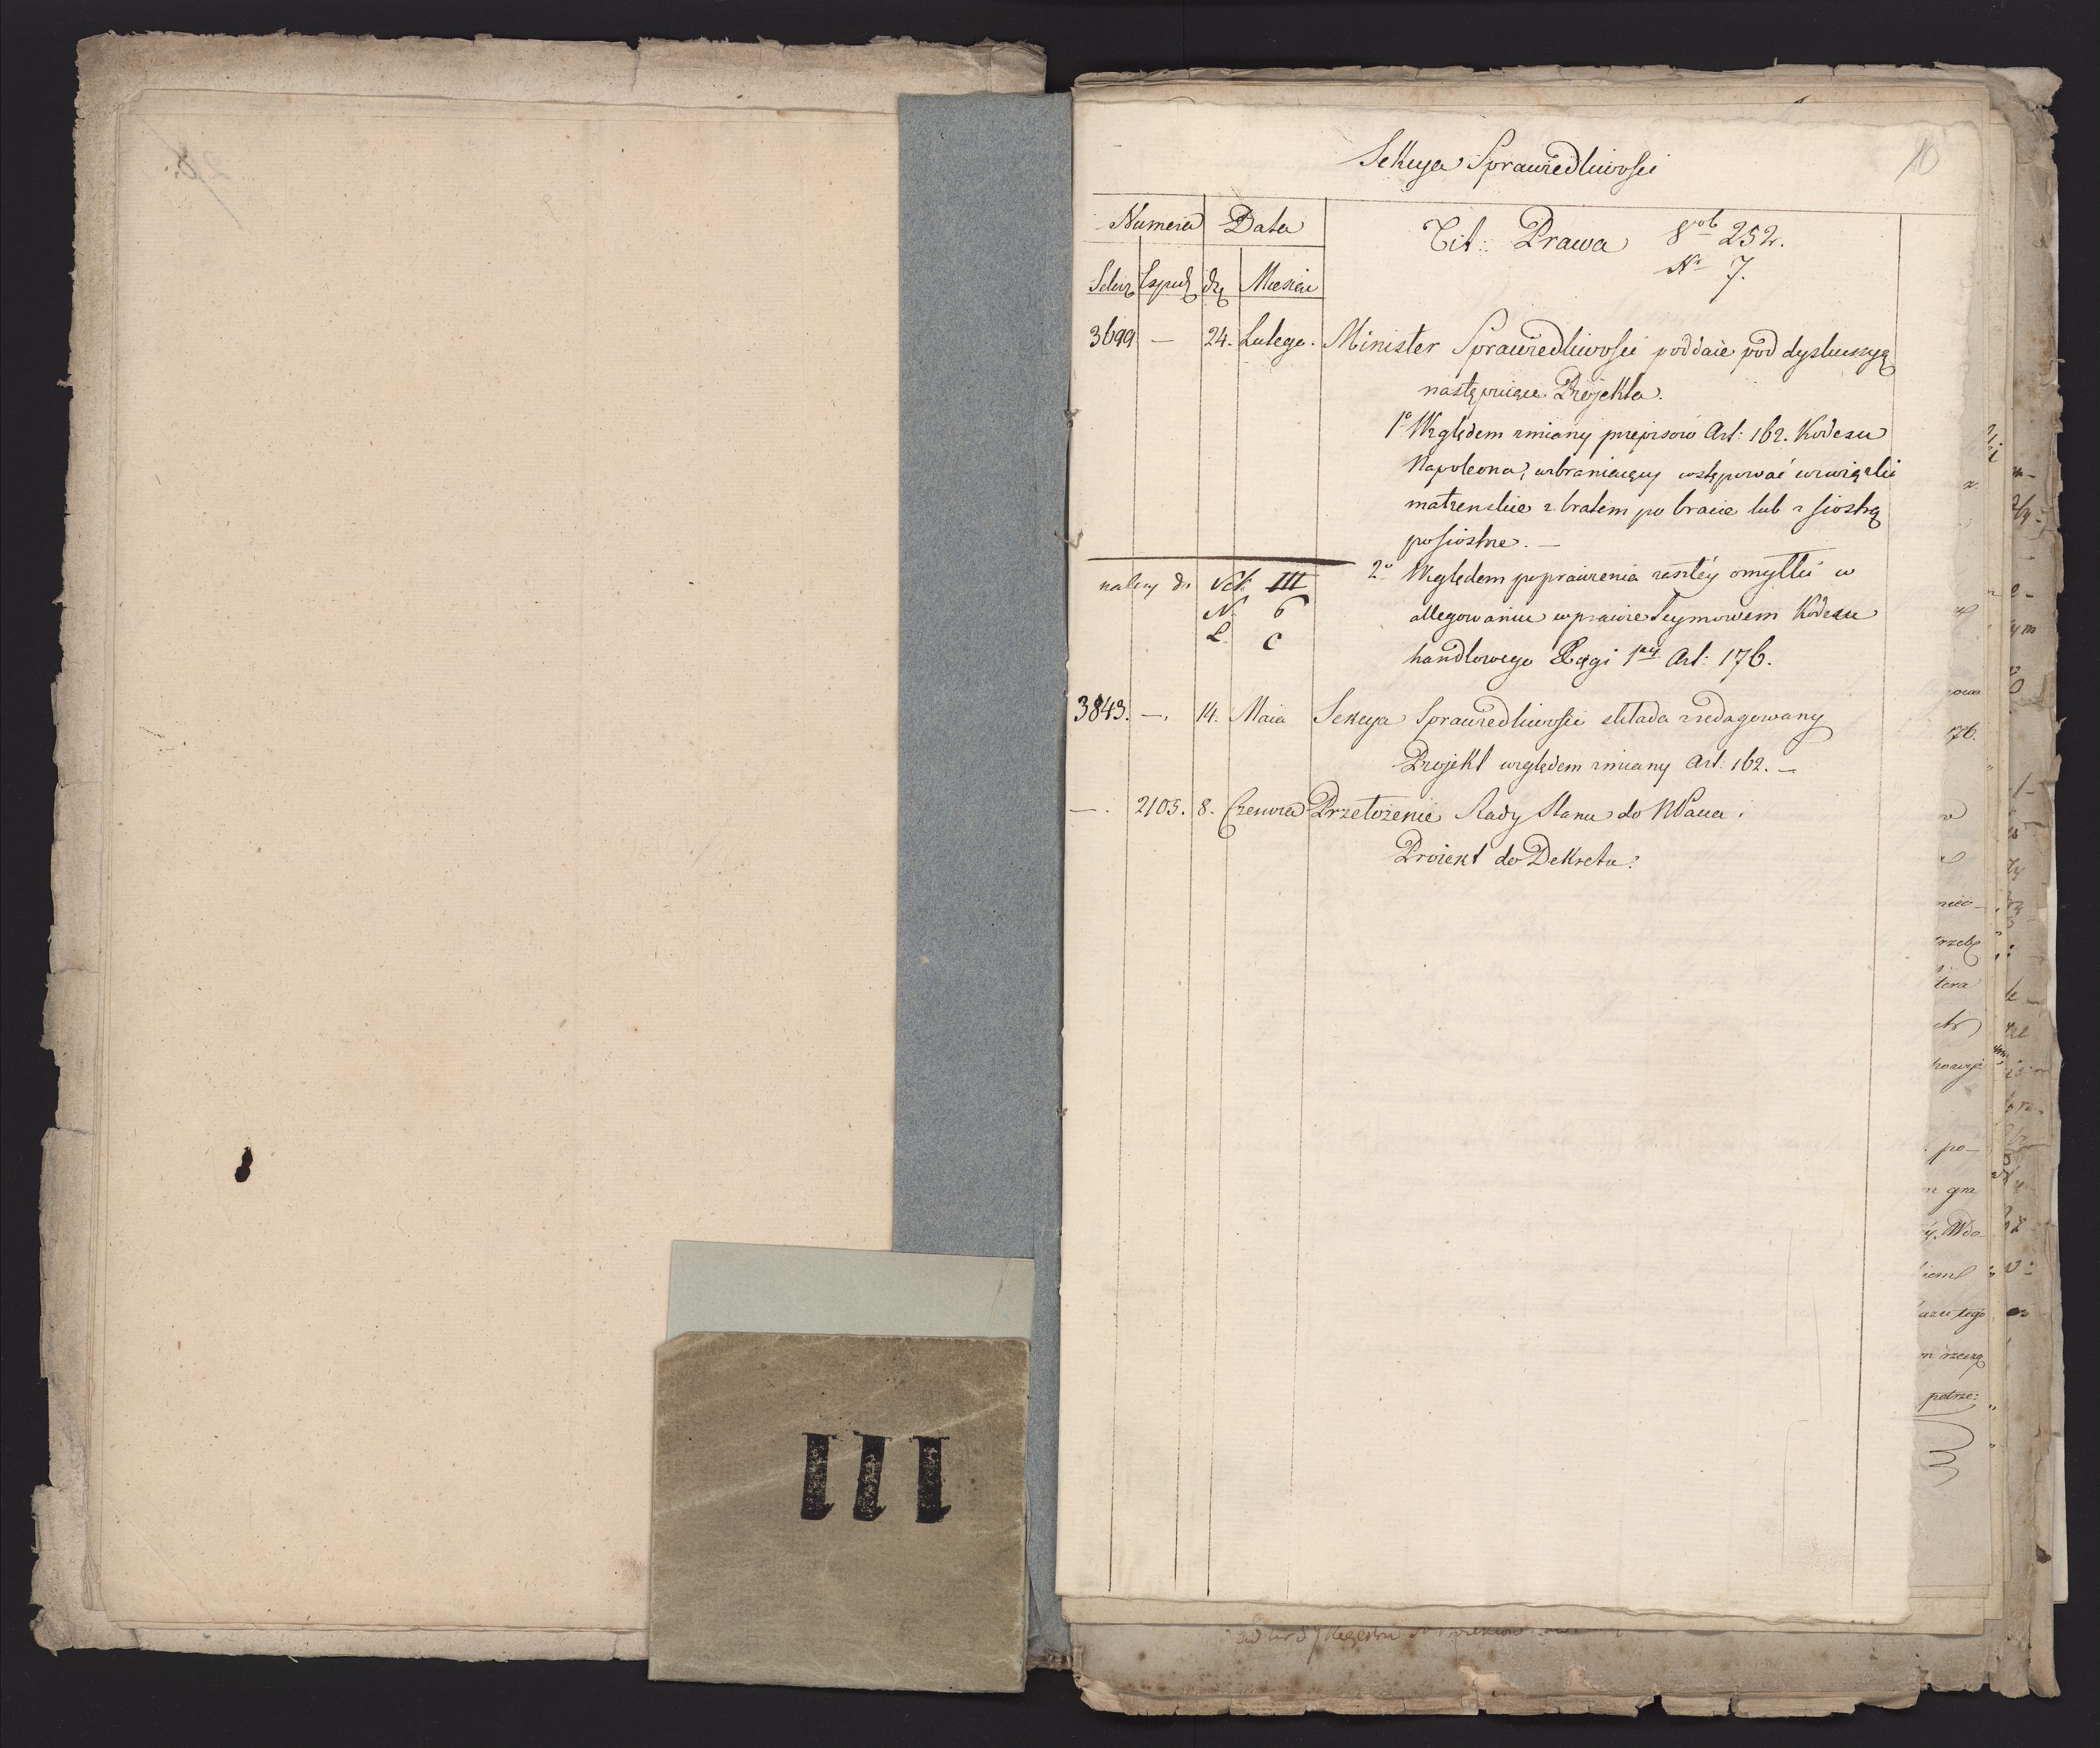 Sekcya Sprawiedliwości
10
Numera Data
Tit: Prawa vol 252.
Nr 7.
dn Miesiąc
3699 — 24. Lutego. Minister Sprawiedliwości poddaie pod dyskussyą
następuiące Projekta.
1o Względem zmiany przepisów Art: 162. Kodexu
Napoleona, wzbraniaiący wstępować w związki
małżenskie z bratem po bracie lub z siostrą
po siostrze. —
2o Względem poprawienia zaszłéy omyłki w
allegowaniu w prawie Seymowem Kodexu
handlowego Xięgi 1éy Art: 176.
należy do Vol. III
N. 6
L. C
3843. —. 14. Maia Sekcya Sprawiedliwości składa zredagowany
Projekt względem zmiany Art: 162. —
—. 2105. 8. Czerwca Przełożenie Rady Stanu do NPana.
Proiekt do Dekretu.
111